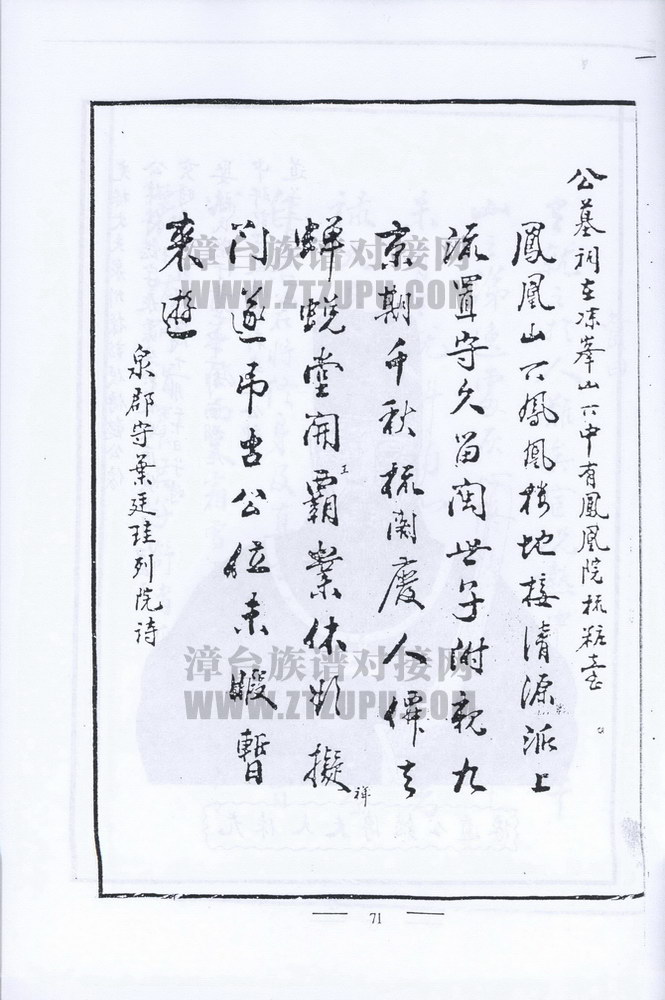 公墓祠在凉峯山下中有鳳凰院梳粧臺
鳳凰山下鳳凰樓地接清源派上
流置守久留閩世子附親九
京期千秋梳閣廢人僊去
蟬蛻堂開霸業休歎擬
王
祥
門遂吊古公位未暇暫
来遊
泉郡守葉廷珪列院诗
71
漳台族谱对接网
WWW.ZTZUPU.COM
漳台族谱对接网
WWW.ZTZUPU.COM